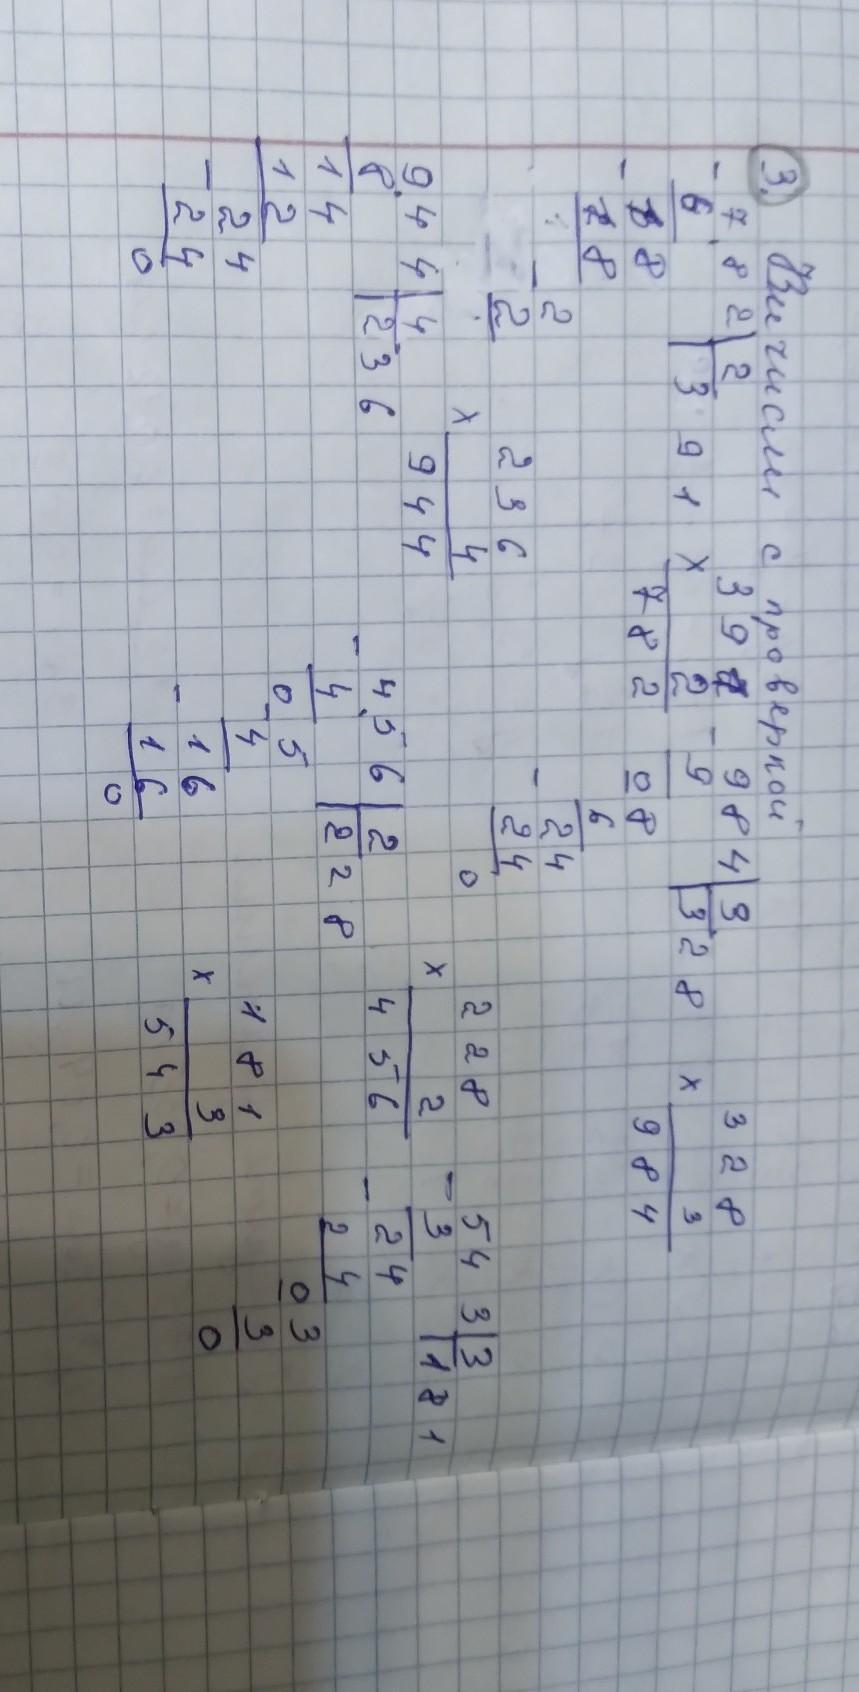 3. Вычисли с проверкой
7 8 2 | 2
- 6 | 3 9 1
- 1 8
1 8
- 2
2
3 9 1
× 2
7 8 2
9 8 4 | 3
- 9 | 3 2 8
0 8
6
- 2 4
2 4
0
3 2 8
× 3
9 8 4
9 4 4 | 4
8 | 2 3 6
1 4
1 2
- 2 4
2 4
0
2 3 6
× 4
9 4 4
4 5 6 | 2
- 4 | 2 2 8
0 5
- 4
- 1 6
1 6
0
2 2 8
× 2
4 5 6
5 4 3 | 3
- 3 | 1 8 1
- 2 4
2 4
0 3
3
0
1 8 1
× 3
5 4 3